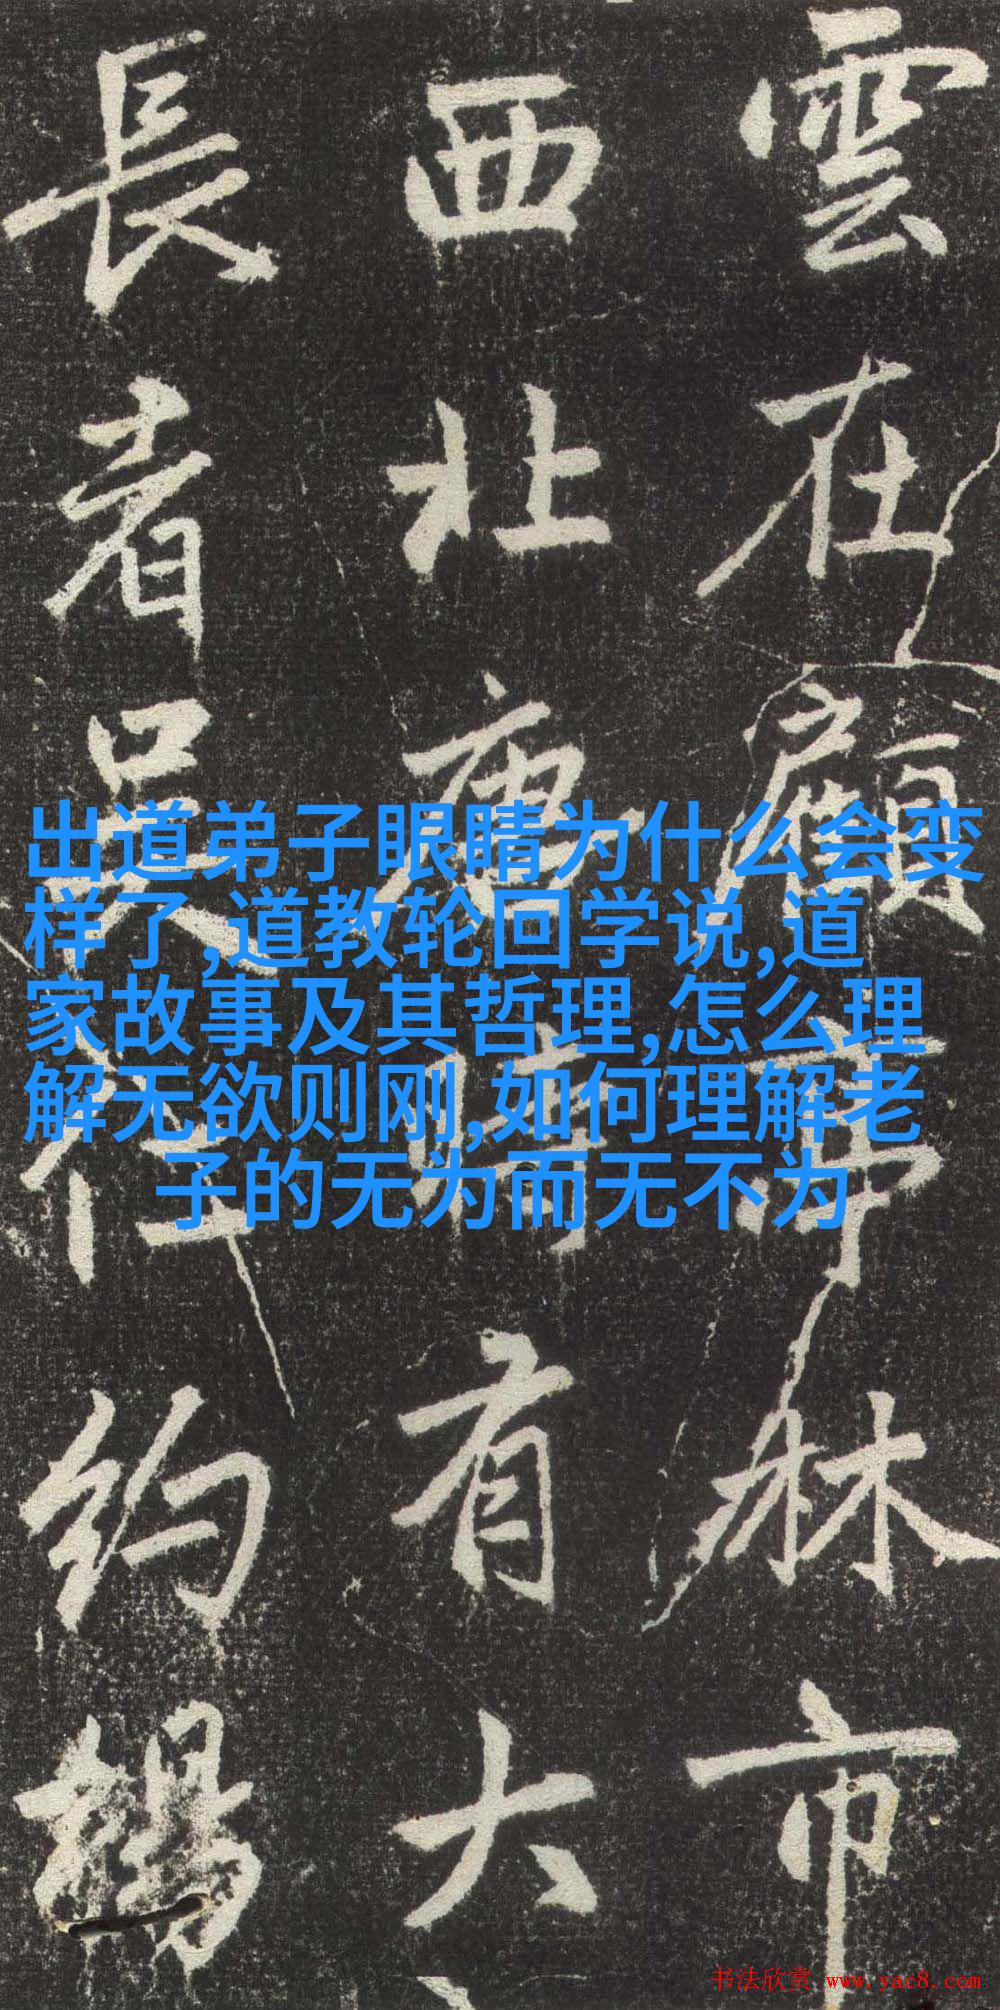 雲在顧亭林市
西北唐時有大
長者吳約
出道弟子眼睛为什么会变
样了,道教轮回学说,道
家故事及其哲理,怎么理
解无欲则刚,如何理解老
子的无为而无不为
书法欣赏 www.yac8.com